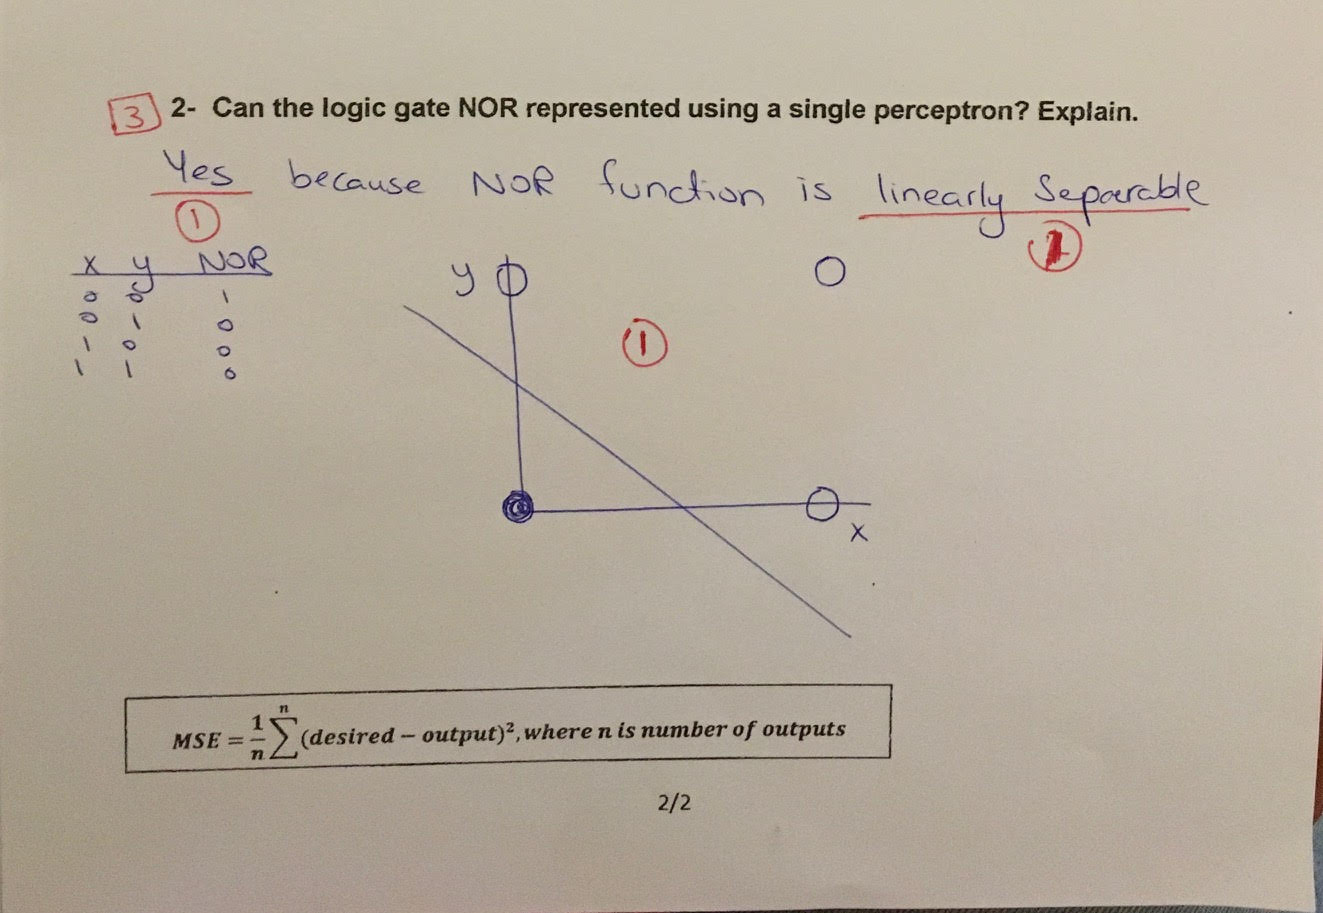 3 2- Can the logic gate NOR represented using a single perceptron? Explain.
Yes because NOR function is linearly Separable
1 1
x y NOR
0 0 1
0 1 0
1 0 0
1 1 0
y
1
x
MSE = 1/n ∑ⁿ (desired − output)², where n is number of outputs
2/2